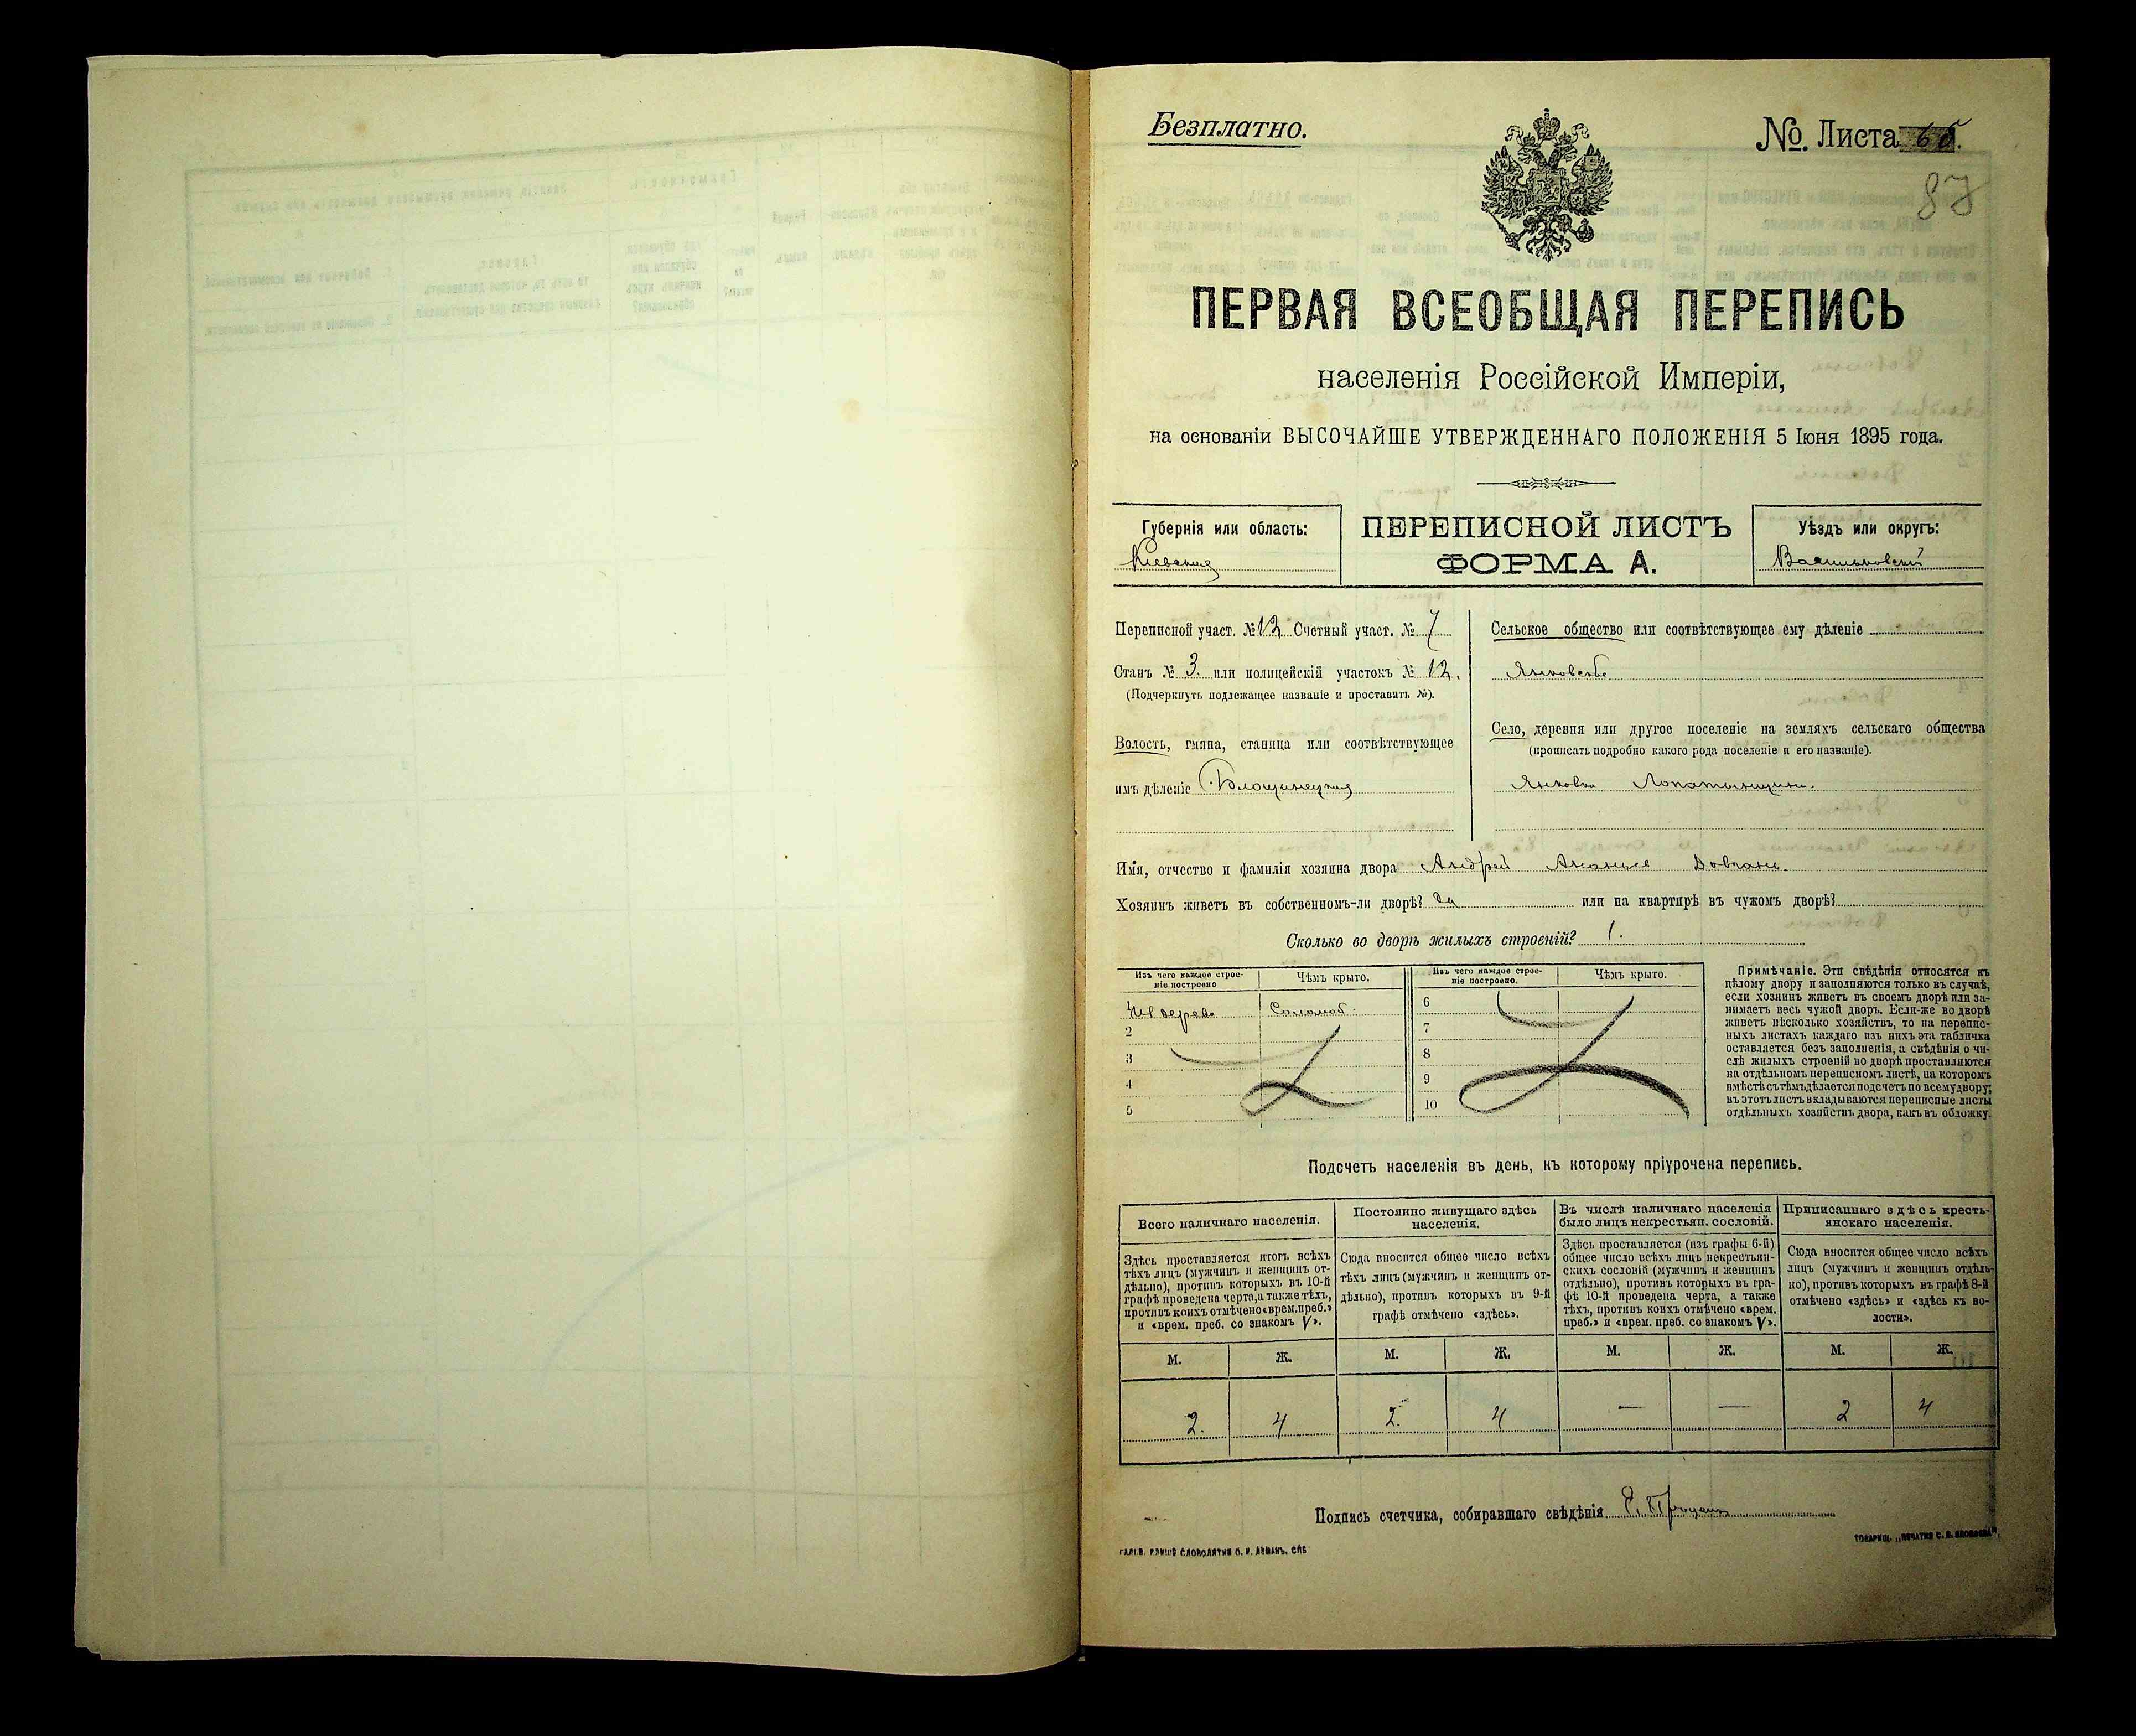 Безплатно.
№. Листа 65.
87
ПЕРВАЯ ВСЕОБЩАЯ ПЕРЕПИСЬ
населенія Россійской Имперіи,
на основаніи ВЫСОЧАЙШЕ УТВЕРЖДЕННАГО ПОЛОЖЕНІЯ 5 Іюня 1895 года.
Губернія или область:
Кіевская
ПЕРЕПИСНОЙ ЛИСТЪ
ФОРМА А.
Уѣздъ или округъ:
Васильковскій
Переписной участ. № 12 Счетный участ. № 7
Станъ № 3. или полицейскій участокъ № 12.
(Подчеркнуть подлежащее названіе и проставить №).
Волость, гмина, станица или соотвѣтствующее
имъ дѣленіе Блощинецкая
Сельское общество или соотвѣтствующее ему дѣленіе
Янковское
Село, деревня или другое поселеніе на земляхъ сельскаго общества
(прописать подробно какого рода поселеніе и его названіе).
Янковка Лопатинщина.
Имя, отчество и фамилія хозяина двора Андрей Ананьев Довгань.
Хозяинъ живетъ въ собственномъ-ли дворѣ? да или на квартирѣ въ чужомъ дворѣ?
Сколько во дворѣ жилыхъ строеній? 1.
Изъ чего каждое строе-
ніе построено
Чѣмъ крыто.
Изъ чего каждое строе-
ніе построено.
Чѣмъ крыто.
1 Из дерева Соломой.
2
3
4
5
6
7
8
9
10
Примѣчаніе. Эти свѣдѣнія относятся къ
цѣлому двору и заполняются только въ случаѣ,
если хозяинъ живетъ въ своемъ дворѣ или за-
нимаетъ весь чужой дворъ. Если-же во дворѣ
живетъ нѣсколько хозяйствъ, то на перепис-
ныхъ листахъ каждаго изъ нихъ эта табличка
оставляется безъ заполненія, а свѣдѣнія о чи-
слѣ жилыхъ строеній во дворѣ проставляются
на отдѣльномъ переписномъ листѣ, на которомъ
вмѣстѣ съ тѣмъ дѣлается подсчетъ по всему двору;
въ этотъ листъ вкладываются переписные листы
отдѣльныхъ хозяйствъ двора, какъ въ обложку.
Подсчетъ населенія въ день, къ которому пріурочена перепись.
Всего наличнаго населенія.
Здѣсь проставляется итогъ всѣхъ
тѣхъ лицъ (мужчинъ и женщинъ от-
дѣльно), противъ которыхъ въ 10-й
графѣ проведена черта, а также тѣхъ,
противъ коихъ отмѣчено «врем. преб.»
и «врем. преб. со знакомъ V».
Постоянно живущаго здѣсь
населенія.
Сюда вносится общее число всѣхъ
тѣхъ лицъ (мужчинъ и женщинъ от-
дѣльно), противъ которыхъ въ 9-й
графѣ отмѣчено «здѣсь».
Въ числѣ наличнаго населенія
было лицъ некрестьян. сословій.
Здѣсь проставляется (изъ графы 6-й)
общее число всѣхъ лицъ некрестьян-
скихъ сословій (мужчинъ и женщинъ
отдѣльно), противъ которыхъ въ гра-
фѣ 10-й проведена черта, а также
тѣхъ, противъ коихъ отмѣчено «врем.
преб.» и «врем. преб. со знакомъ V».
Приписаннаго здѣсь кресть-
янскаго населенія.
Сюда вносится общее число всѣхъ
лицъ (мужчинъ и женщинъ отдѣль-
но), противъ которыхъ въ графѣ 8-й
отмѣчено «здѣсь» и «здѣсь къ во-
лости».
М. Ж. М. Ж. М. Ж. М. Ж.
2. 4 2. 4 — — 2 4
Подпись счетчика, собиравшаго свѣдѣнія